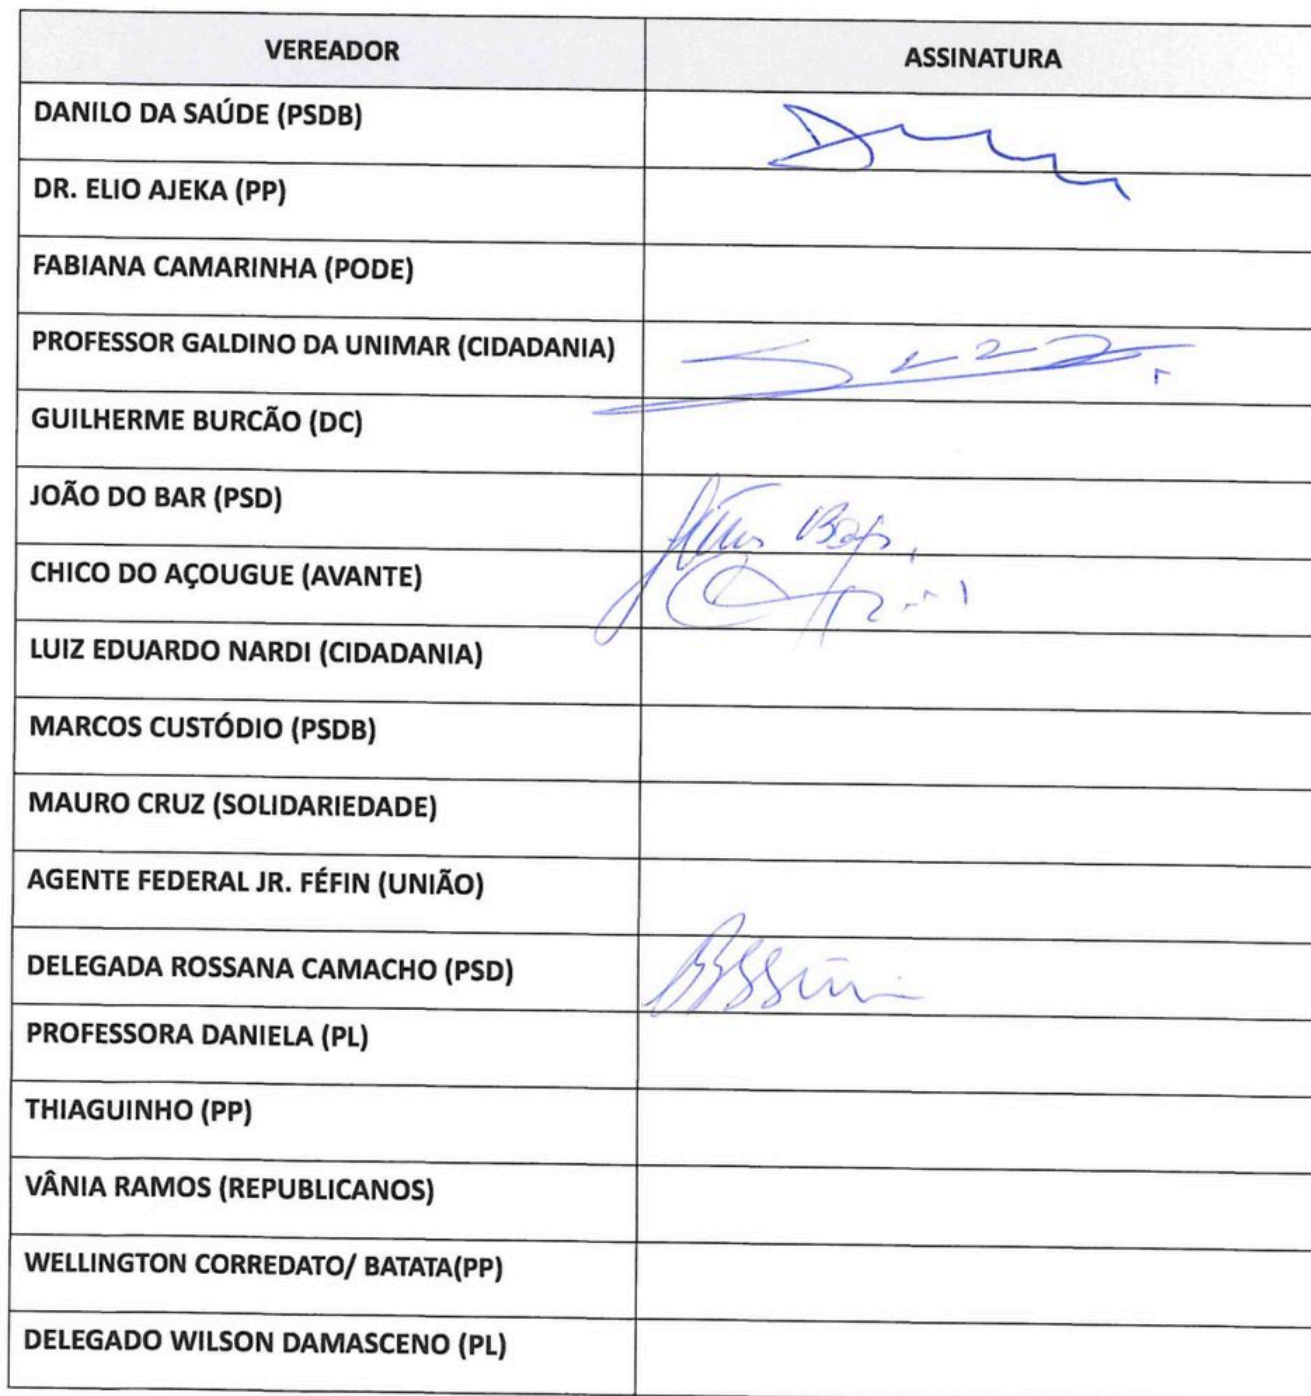 VEREADOR
ASSINATURA
DANILO DA SAÚDE (PSDB)
DR. ELIO AJEKA (PP)
FABIANA CAMARINHA (PODE)
PROFESSOR GALDINO DA UNIMAR (CIDADANIA)
GUILHERME BURCÃO (DC)
JOÃO DO BAR (PSD)
CHICO DO AÇOUGUE (AVANTE)
LUIZ EDUARDO NARDI (CIDADANIA)
MARCOS CUSTÓDIO (PSDB)
MAURO CRUZ (SOLIDARIEDADE)
AGENTE FEDERAL JR. FÉFIN (UNIÃO)
DELEGADA ROSSANA CAMACHO (PSD)
PROFESSORA DANIELA (PL)
THIAGUINHO (PP)
VÂNIA RAMOS (REPUBLICANOS)
WELLINGTON CORREDATO/ BATATA(PP)
DELEGADO WILSON DAMASCENO (PL)